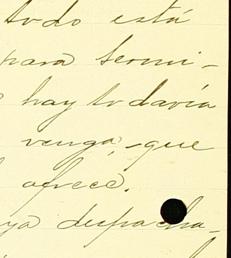 todo está
para termi-
hay todavía
venga, que
ofrece.
ya despacha-